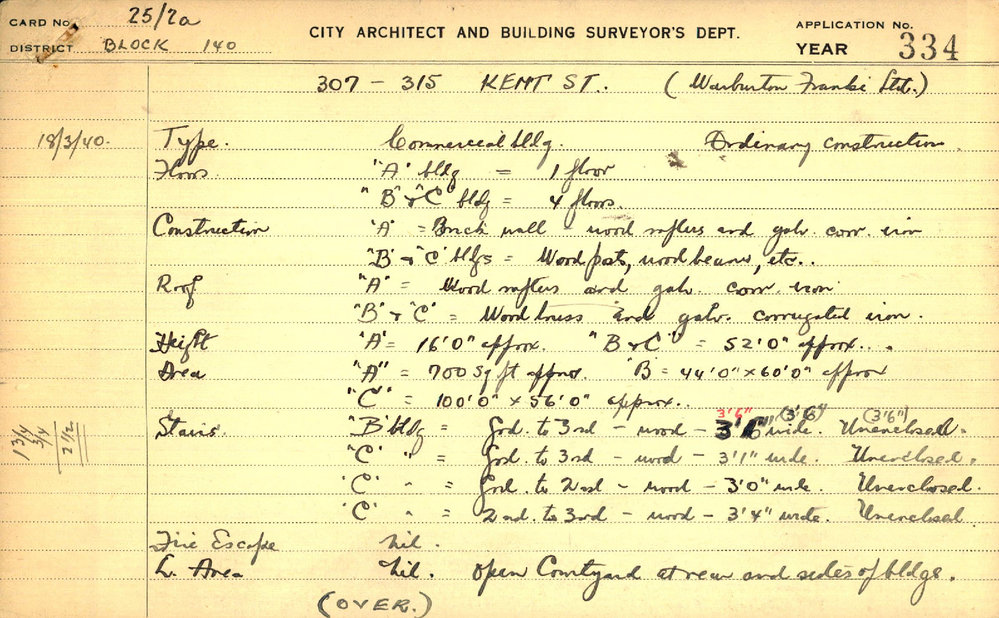 CARD No. 25/2a CITY ARCHITECT AND BUILDING SURVEYOR'S DEPT. APPLICATION No.
DISTRICT BLOCK 140 YEAR 334
307 - 315 KENT ST. (Warburton Franki Ltd.)
18/3/40. Type. Commercial bldg. Ordinary construction.
Floors "A" bldg = 1 floor
"B" & "C" bldg = 4 floors.
Construction "A" = Brick wall - wood rafters and galv. corr. iron
"B" & "C" bldgs = Wood posts, wood beams, etc..
Roof "A" = Wood rafters and galv. corr. iron
"B" & "C" = Wood truss and galv. corrugated iron.
Height "A" = 16'0" approx. "B & C" = 52'0" approx...
Area "A" = 700 sq ft approx. "B = 44'0" x 60'0" approx
"C" = 100'0" x 56'0" approx..
3'6" (3'6") (3'6")
Stairs. "B" bldg = Grd. to 3rd - wood - wide. Unenclosed.
"C" " = Grd. to 3rd - wood - 3'1" wide. Unenclosed.
"C" " = Grd. to 2nd - wood - 3'0" wide. Unenclosed.
"C" " = 2nd. to 3rd - wood - 3'4" wide. Unenclosed
1 3/4
3/4
2 1/2
Fire Escape Nil.
L. Area Nil. Open Courtyard at rear and sides of bldge.
(OVER.)